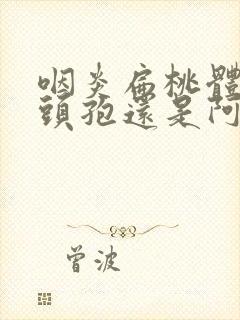 咽炎扁桃體
頭孢還是阿
曾波